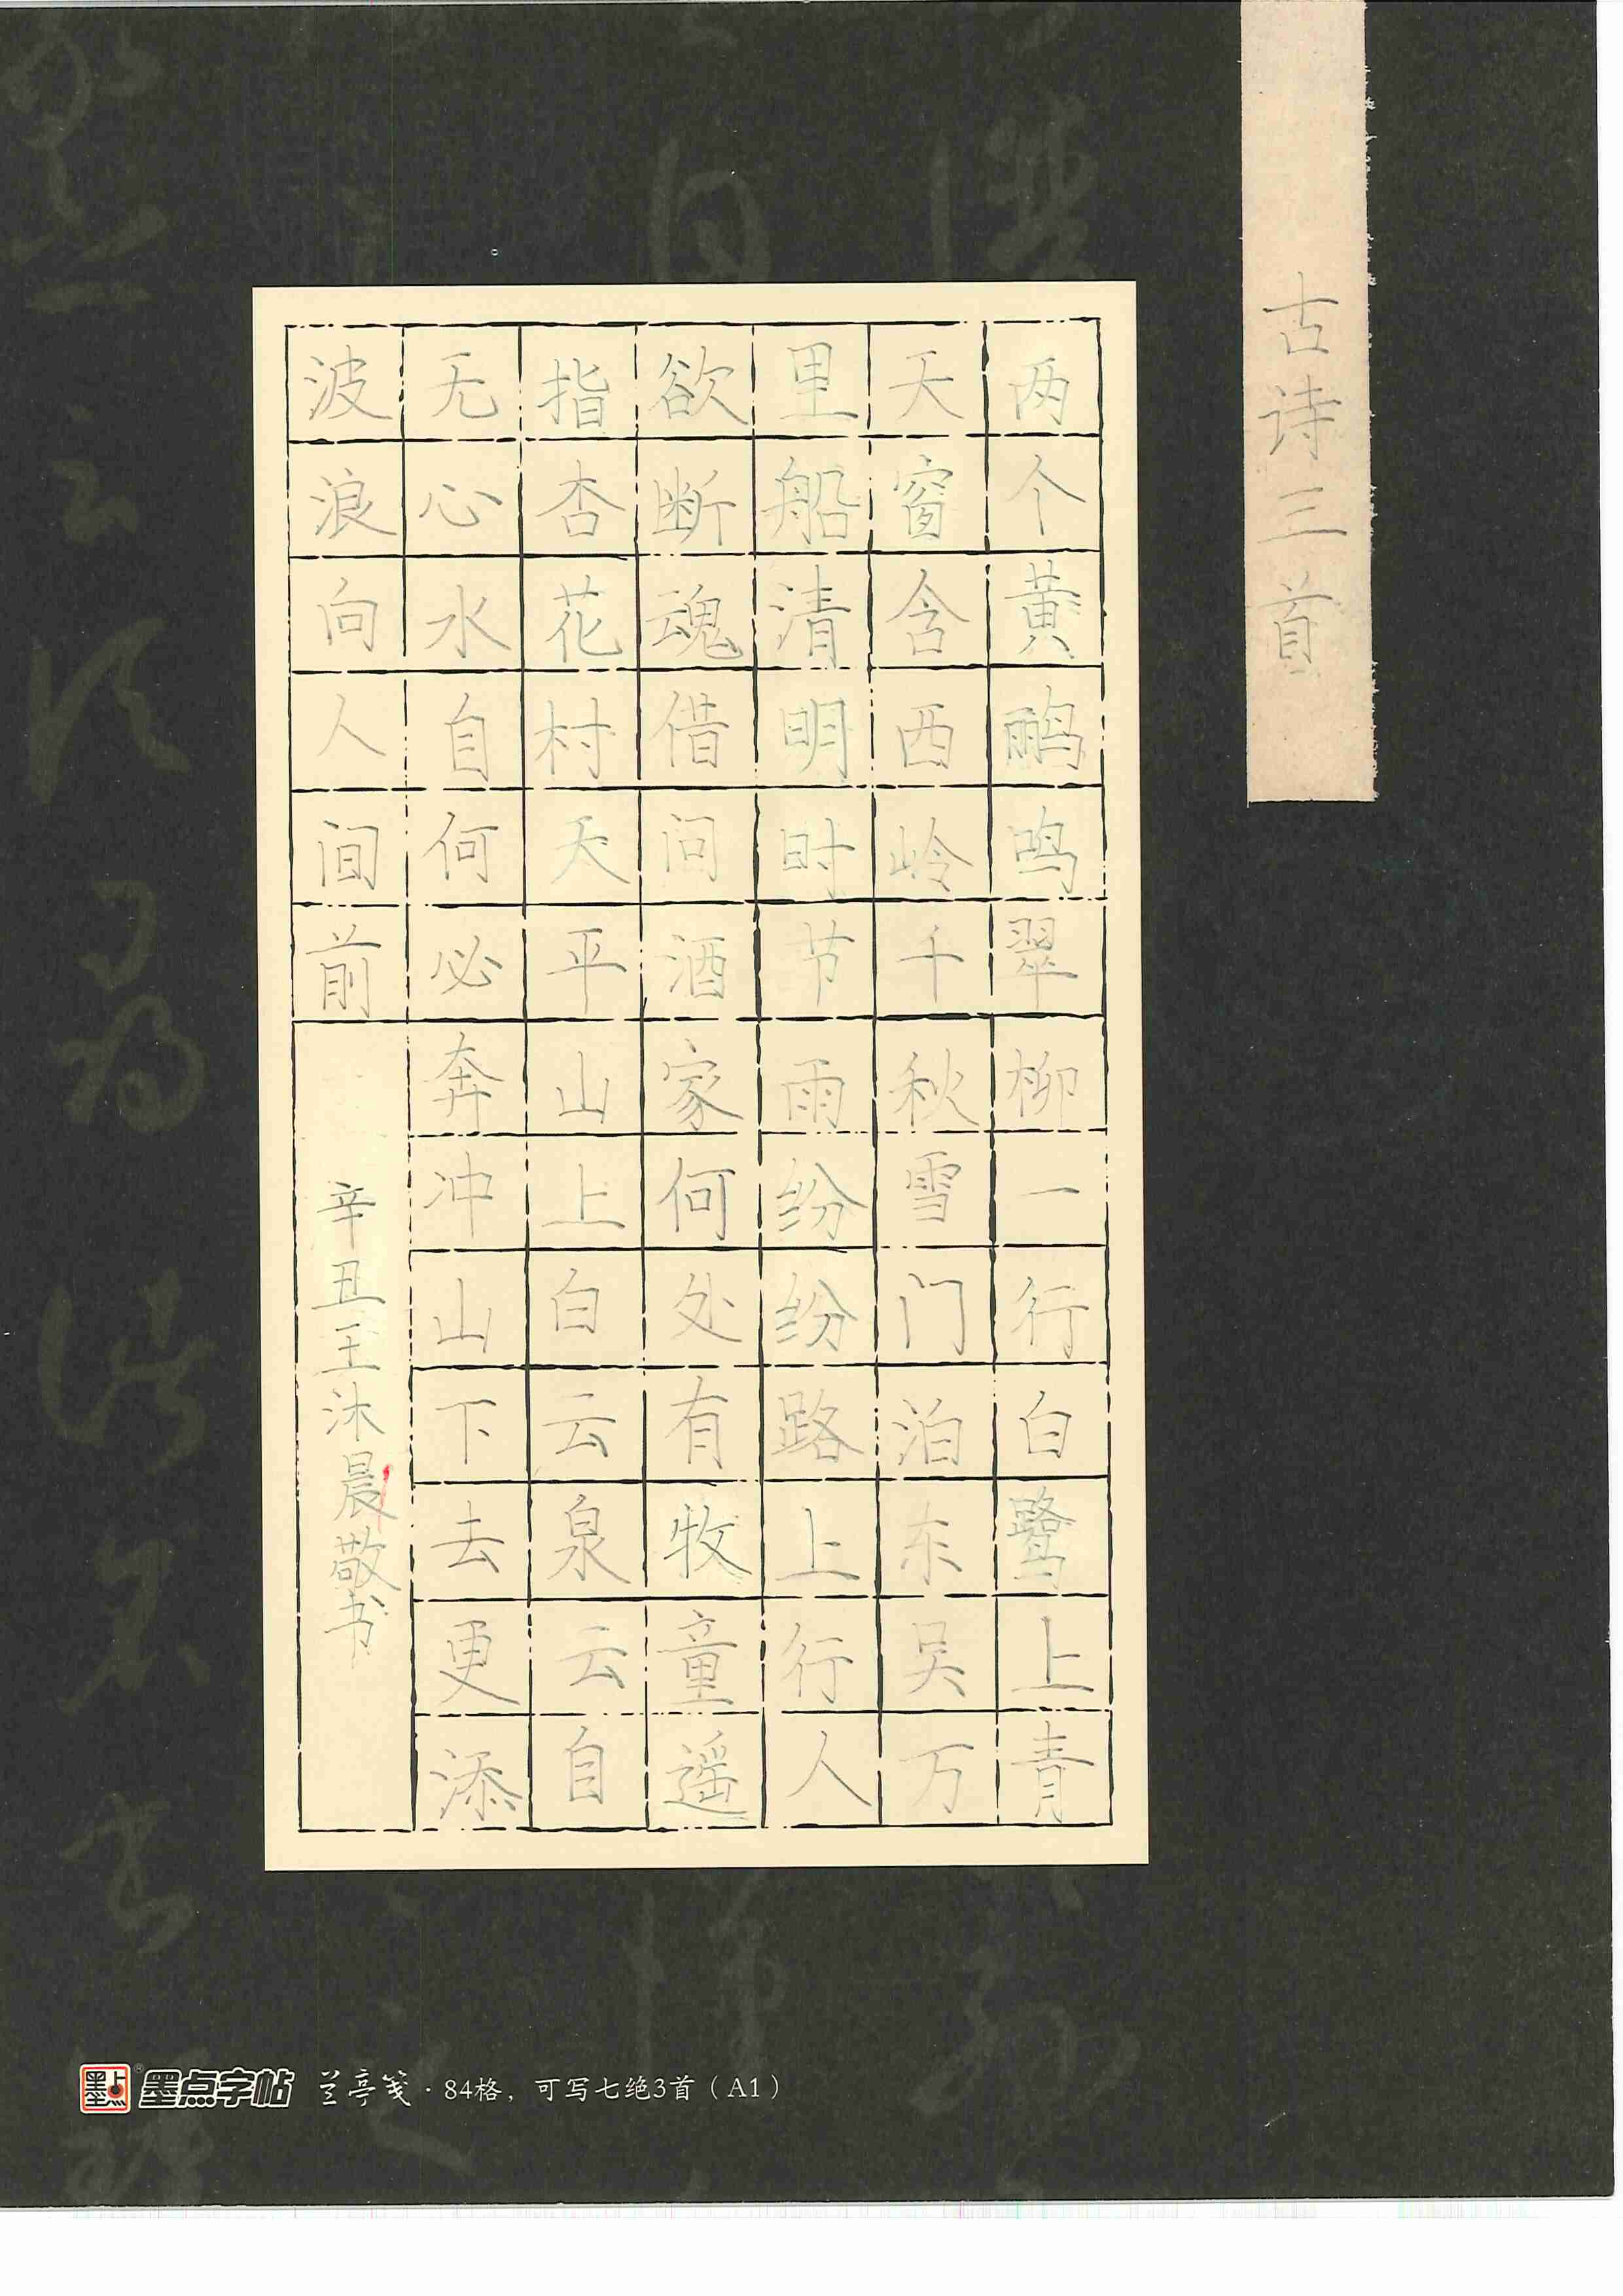 古诗三首
两个黄鹂鸣翠柳一行白鹭上青
天窗含西岭千秋雪门泊东吴万
里船清明时节雨纷纷路上行人
欲断魂借问酒家何处有牧童遥
指杏花村天平山上白云泉云自
无心水自何必奔冲山下去更添
波浪向人间前
辛丑王沐晨敬书
墨点字帖 兰亭笺·84格，可写七绝3首（A1）